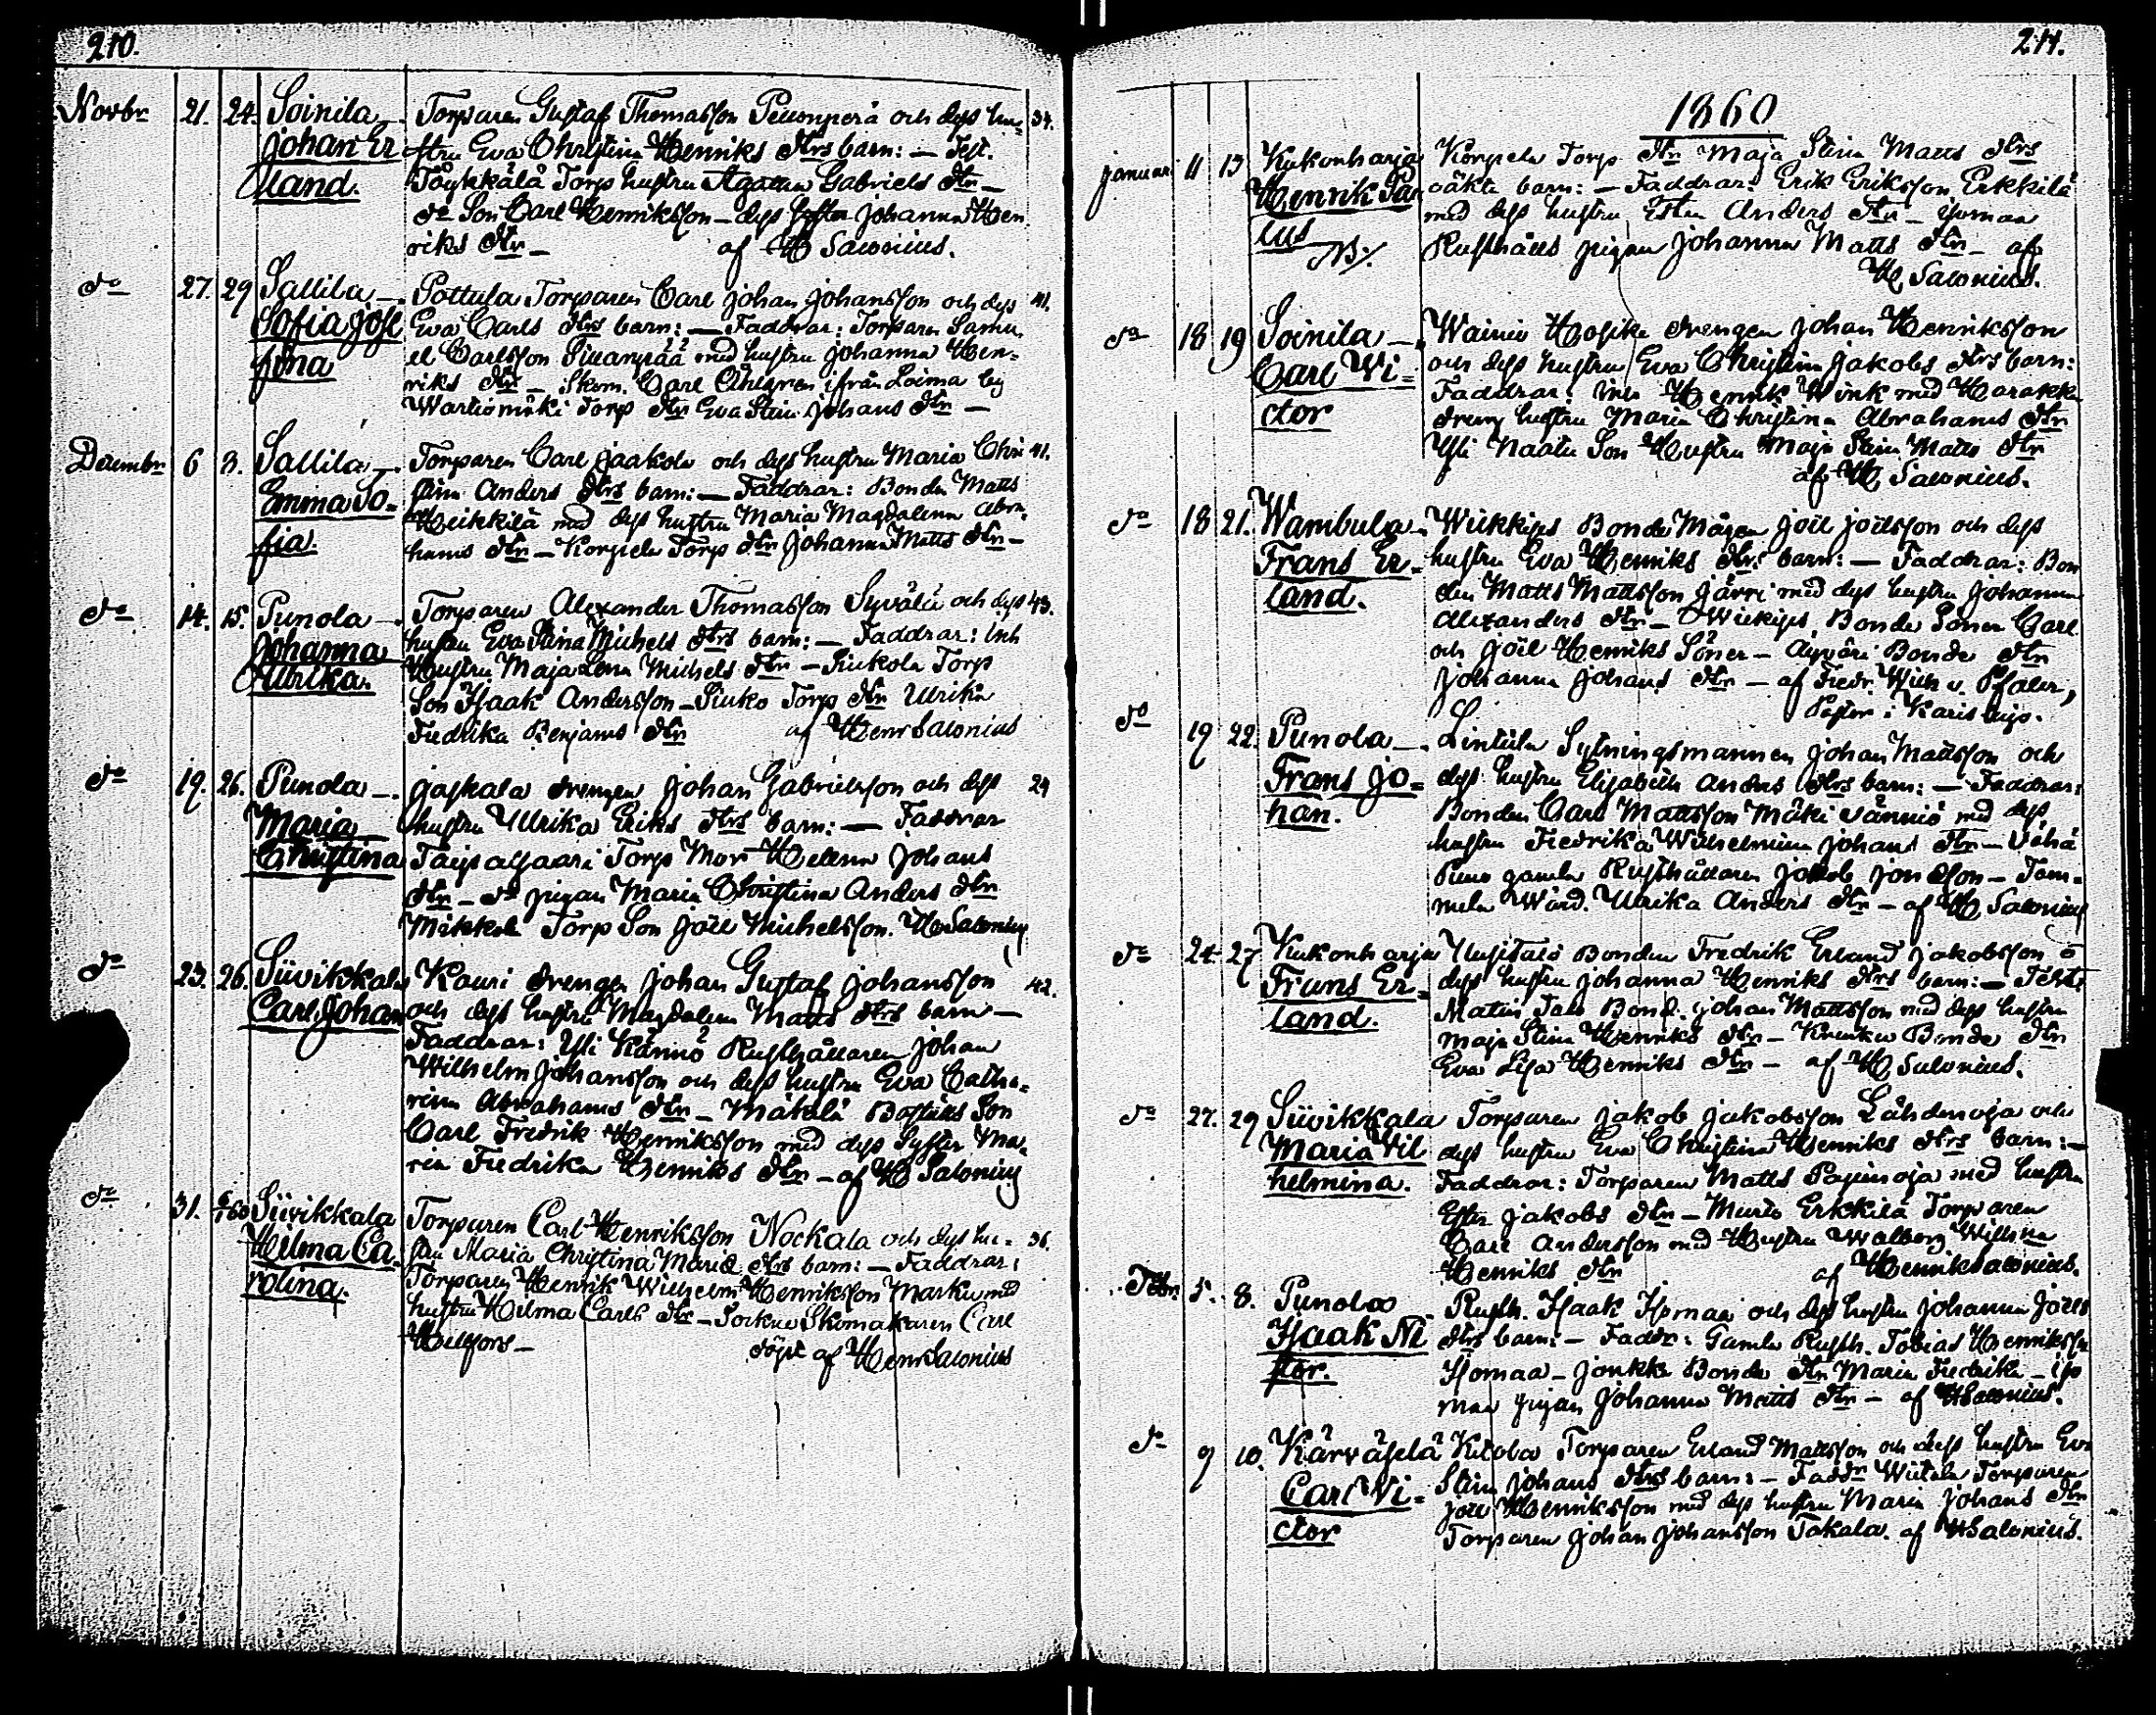 210.
Novbr 21. 24. Soinila —. Torparen Gustaf Thomasson Peuonperä och dess hu- 34.
Johan Er stru Eva Christina Henriks dtrs barn: — Test.
land. Töykkälä Torp hustru Agatha Gabriels dtr —
do Son Carl Henriksson — dess Syster Johanna Hen
riks dtr — af H Salonius.
do 27. 29 Sallila —. Pottula Torparen Carl Johan Johansson och dess 41.
Sofia Jose Eva Carls dtrs barn: — Faddrar: Torparen Samu
fina el Carlsson Siltanpää med hustru Johanna Hen-
riks dtr — Skom. Carl Ahlgren ifrån Loima by
Wartiomäki Torp dtr Eva Stina Johans dtr —
Decembr 6 8. Sallila —. Torparen Carl Jaakola och dess hustru Maria Chri 41.
Emma So- stina Anders dtrs barn: — Faddrar: Bonden Matts
fia. Heikkilä med dess hustru Maria Magdalena Abra
hams dtr — Korpela Torp dtr Johanna Matts dtr —
do 14. 15. Punola —. Torparen Alexander Thomasson Syvälä och dess 43.
Johanna hustru Eva Stina Michels dtrs barn: — Faddrar: Inh
Ulrika. Hustru Maja Lena Michels dtr — Sinkola Torp
Son Isaak Andersson — Sinko Torp dtr Ulrika
Fredrika Benjams dtr af Henr Salonius
do 19. 26. Punola —. Jaskala drengen Johan Gabrielsson och dess 29
Maria hustru Ulrika Eriks dtrs barn: — Faddrar
Christina Taipalsaari Torp Mor Helena Johans
dtr — do pigan Maria Christina Anders dtr
Mikkola Torp Son Joel Michelsson. H Salonius
do 23. 26. Siivikkala Kauri drengen Johan Gustaf Johansson 42.
Carl Johan och dess hustru Magdalena Matts dtrs barn —
Faddrar: Yli Kännö Rusthållaren Johan
Wilhelm Johansson och dess hustru Eva Catha-
rina Abrahams dtr — Mäkelä Boställs Son
Carl Fredrik Henriksson med dess Syster Ma-
ria Fredrika Henriks dtr — af H Salonius
do 31. 6/1 60 Siivikkala Torparen Carl Henriksson Nockala och dess hu- 36.
Hilma Ca- stru Maria Christina Maria dtrs barn: — Faddrar:
rolina. Torparen Henrik Wilhelm Henriksson Marku med
hustru Hilma Carls dtr — Sockne Skomakaren Carl
Helfors — döpt af Henr Salonius
211.
1860
Januari 11 13 Kukonharja Korpela Torp dtr Maja Stina Matts dtrs
Henrik Jü oäkta barn: — Faddrar: Erik Eriksson Erkkilä
lius med dess hustru Ester Anders dtr — Isomaa
NB/. Rusthålls pigan Johanna Matts dtr — af
H Salonius.
do 18 19 Soinila —. Wainio Hospike drengen Johan Henriksson
Carl Vi- och dess hustru Eva Christina Jakobs dtrs barn:
ctor Faddrar: Inh Henrik Wink med Harakka
dreng hustru Maria Christina Abrahams dtr
Yli Naatu Son Hustru Maja Stina Matts dtr
af H Salonius.
do 18 21. Wambula. Wiikkips Bonde Mågen Joel Joelsson och dess
Frans Er- hustru Eva Henriks dtrs barn: — Faddrar: Bon
land. den Matts Mattsson Järri med dess hustru Johanna
Alexanders dtr — Wiikkips Bonde Soner Carl
och Joel Henriks Söner — Bonde dtr
Johanna Johans dtr — af Fredr. Wilh v. Pfaler,
Pastor i Karislojo.
do 19 22. Punola —. Lintula Sytningsmannen Johan Mattsson och
Frans Jo- dess hustru Elisabeth Anders dtrs barn: — Faddrar:
han. Bonden Carl Mattsson Mäki Jännis med dess
hustru Fredrika Wilhelmina Johans dtr — Vähä
Pieno gamla Rusthållaren Jakob Jonasson — Tam-
mela Wärd. Ulrika Anders dtr — af H Salonius
do 24. 27 Kukonharja Uusitalo Bonden Fredrik Erland Jakobsson o
Frans Er- dess hustru Johanna Henriks dtrs barn: — Test:
land. Matin Talo Bond. Johan Mattsson med dess hustru
Maja Stina Henriks dtr — Krenku Bonde dtr
Eva Lisa Henriks dtr — af H Salonius.
do 27. 29 Siivikkala Torparen Jakob Jakobsson Lähdenoja och
Maria Vil dess hustru Eva Christina Henriks dtrs barn: —
helmina. Faddrar: Torparen Matts Papinoja med hustru
Ester Jakobs dtr — Murto Erkkilä Torparen
Carl Andersson med Hustru Walborg
Henriks dtr af Henrik Salonius.
Febr. 5. 8. Punola Rusth. Isaak Isomaa och dess hustru Johanna Joels
Isaak Ne dtrs barn: — Faddr: Gamla Rusth. Tobias Henriksson
stor. Isomaa — Jonkka Bonde dtr Maria Fredrika — Iso
maa pigan Johanna Matts dtr — af H Salonius.
do 9 10. Kärväselä Kitola Torparen Erland Mattsson och dess hustru Eva
Carl Vi- Stina Johans dtrs barn: — Faddr Wiitala Torparen
ctor Joel Henriksson med dess hustru Maria Johans dtr
Torparen Johan Johansson Takala. af H Salonius.